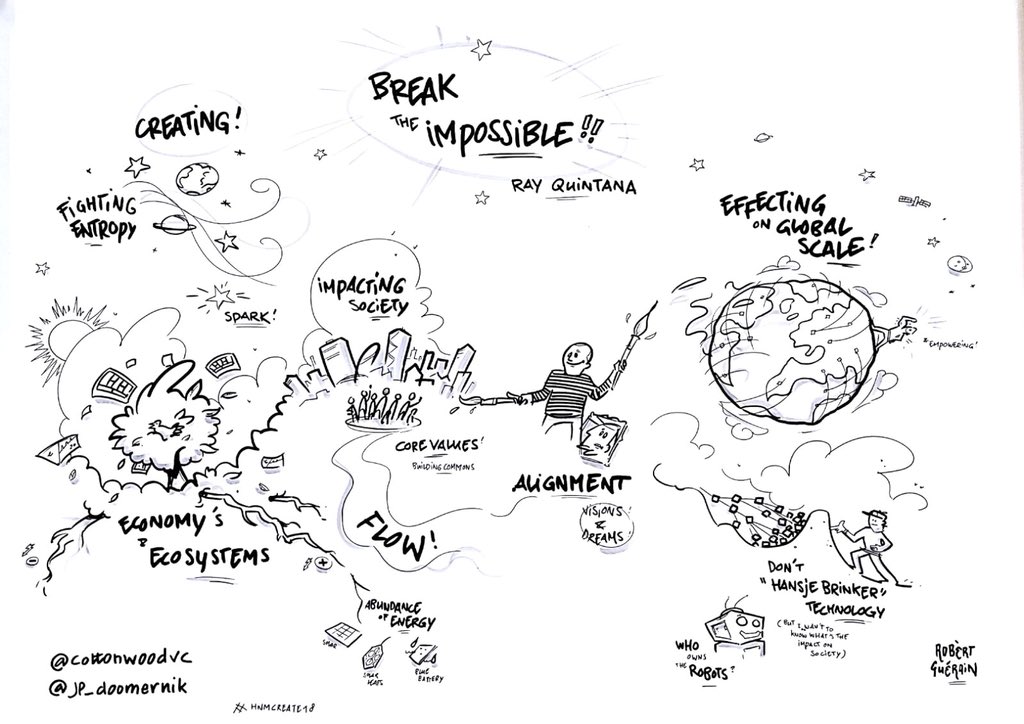 BREAK
THE IMPOSSIBLE!!
RAY QUINTANA
CREATING!
FIGHTING
ENTROPY
SPARK!
IMPACTING
SOCIETY
CORE VALUES!
BUILDING COMMONS
ECONOMY'S
& ECOSYSTEMS
FLOW!
ABUNDANCE
OF ENERGY
SOLAR
BLUE
BATTERY
ALIGNMENT
VISIONS
&
DREAMS!
EFFECTING
ON GLOBAL
SCALE!
EMPOWERING!
DON'T
"HANSJE BRINKER"
TECHNOLOGY
(BUT I WAN'T TO
KNOW WHAT'S THE
IMPACT ON
SOCIETY)
WHO
OWNS
THE ROBOTS?
@cottonwoodvc
@JP_doomernik
# HNMCREATE18
ROBÈRT
GUÉRAIN